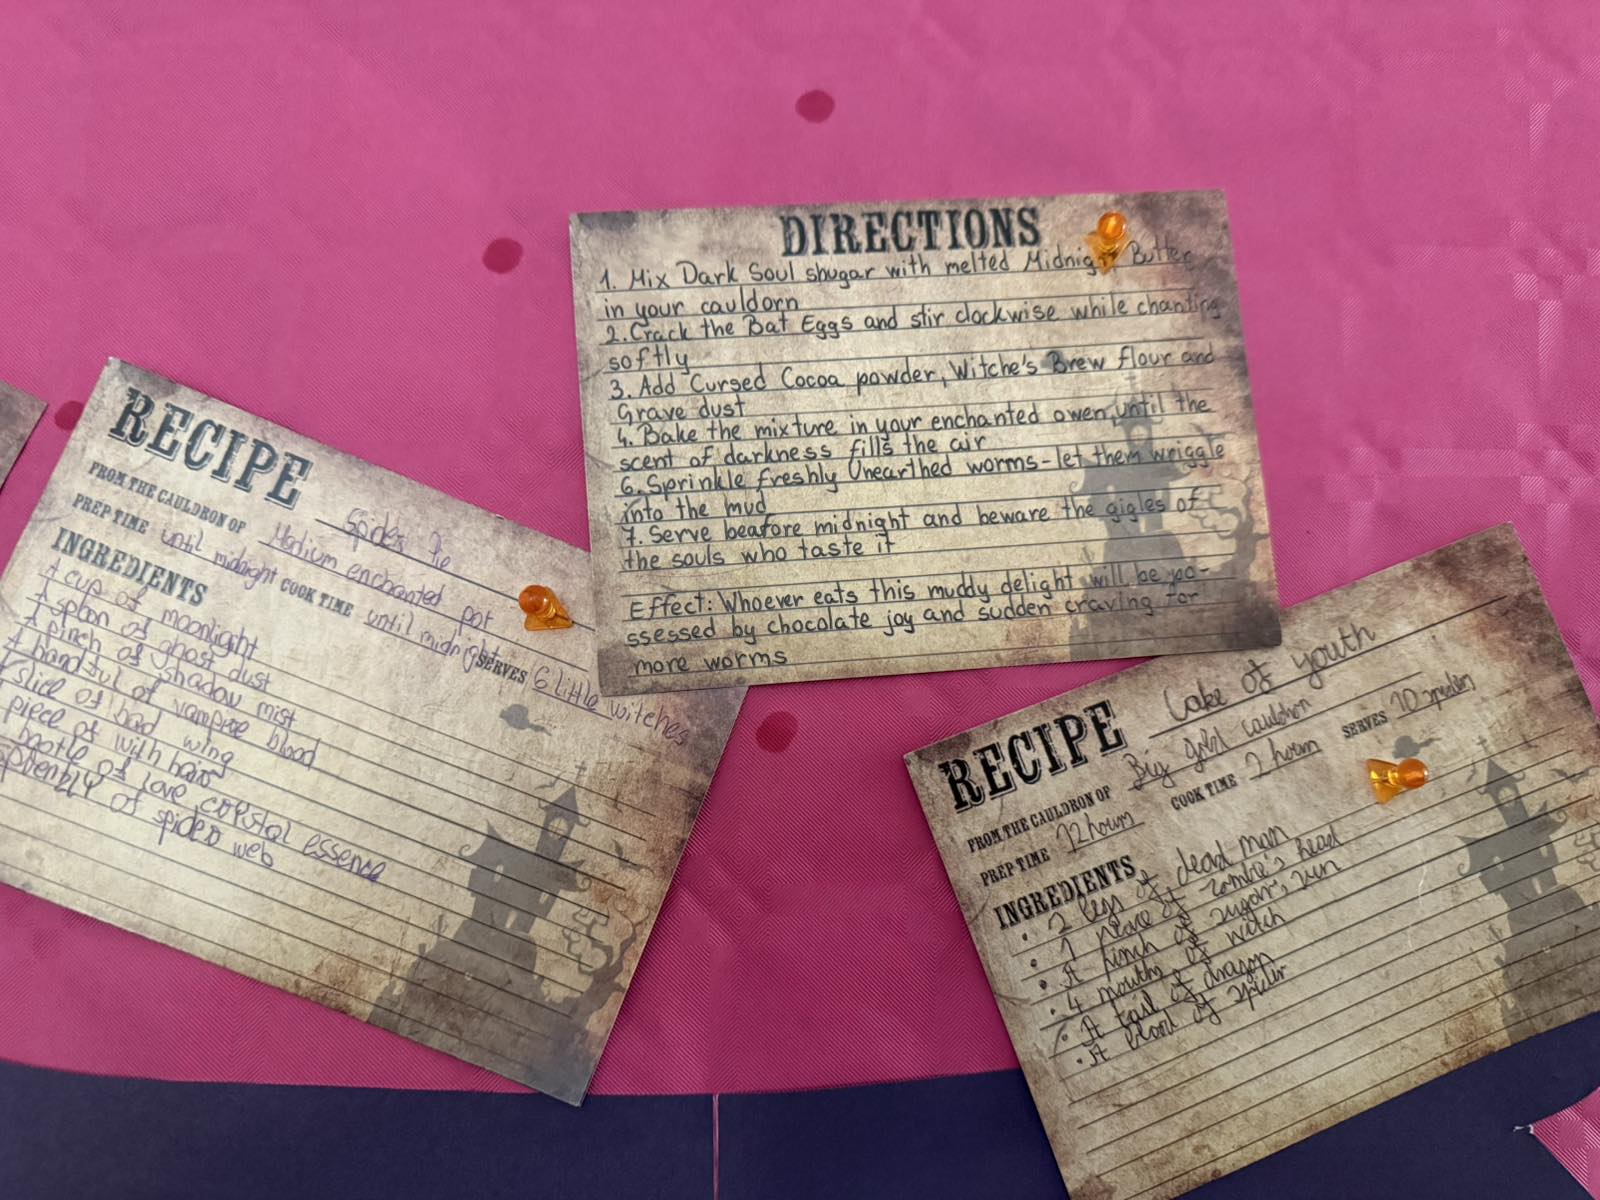 RECIPE
Spider Pie
FROM THE CAULDRON OF Medium enchanted pot
PREP TIME until midnight COOK TIME until midnight SERVES 6 little witches
INGREDIENTS
A cup of moonlight
A spoon of ghost dust
A pinch of shadow mist
A handful of vampire blood
slice of bad wing
piece of with hair
bootle of love essence
of spider web
DIRECTIONS
1. Mix Dark Soul shugar with melted Midnight Butter
in your cauldorn
2. Crack the Bat Eggs and stir clockwise while chanting
softly
3. Add Cursed Cocoa powder, Witche's Brew flour and
Grave dust
4. Bake the mixture in your enchanted owen, until the
scent of darkness fills the air
6. Sprinkle freshly Unearthed worms - let them wriggle
into the mud
7. Serve beafore midnight and beware the gigles of
the souls who taste it
Effect: Whoever eats this muddy delight will be po-
ssessed by chocolate joy and sudden craving for
more worms
RECIPE
Cake of youth
FROM THE CAULDRON OF Big gold cauldron
PREP TIME 12 hours COOK TIME 2 hours SERVES 10
INGREDIENTS
• 2 legs of dead man
• 1 of zombie's head
• A pinch of sugar,
• 4 mouths of witch
• A tail of dragon
• A blood of spider